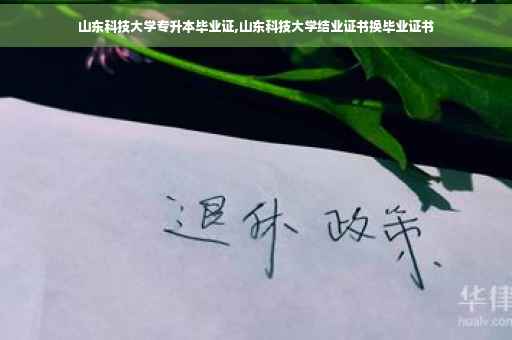 山东科技大学专升本毕业证,山东科技大学结业证书换毕业证书
退休 政策
华律
hualv.com